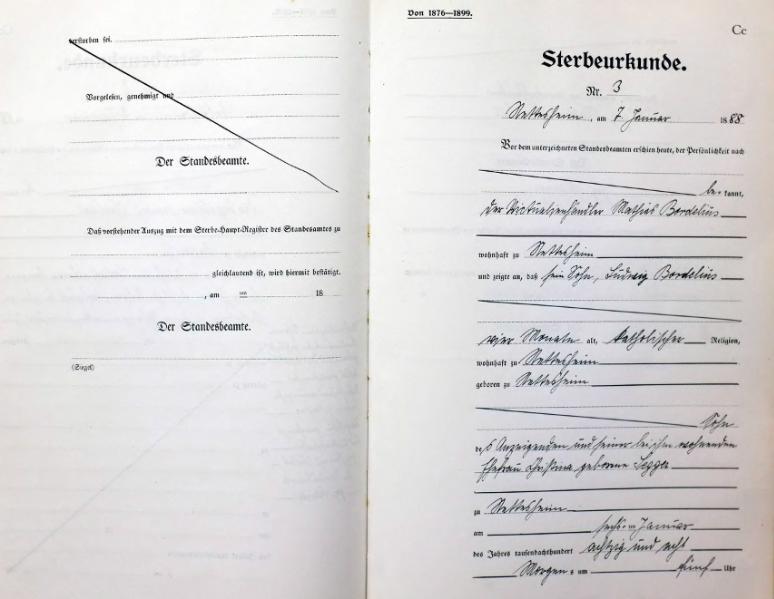 verstorben sei.
Vorgelesen, genehmigt und
Der Standesbeamte.
Daß vorstehender Auszug mit dem Sterbe-Haupt-Register des Standesamtes zu
gleichlautend ist, wird hiermit bestätigt.
, am ten 18
Der Standesbeamte.
(Siegel)
Von 1876—1899.
Cc
Sterbeurkunde.
Nr. 3
Nettesheim, am 7 Januar 1888
Vor dem unterzeichneten Standesbeamten erschien heute, der Persönlichkeit nach
be- kannt,
der Victualienhändler Mathias Bordelius
wohnhaft zu Nettesheim
und zeigte an, daß sein Sohn, Ludwig Bordelius
vier Monate alt, katholischer Religion,
wohnhaft zu Nettesheim
geboren zu Nettesheim
Sohn
des Anzeigenden und seiner bei ihm wohnenden
Ehefrau Christina geborene
zu Nettesheim
am sechsten Januar
des Jahres tausendachthundert achtzig und acht
Morgens um fünf Uhr